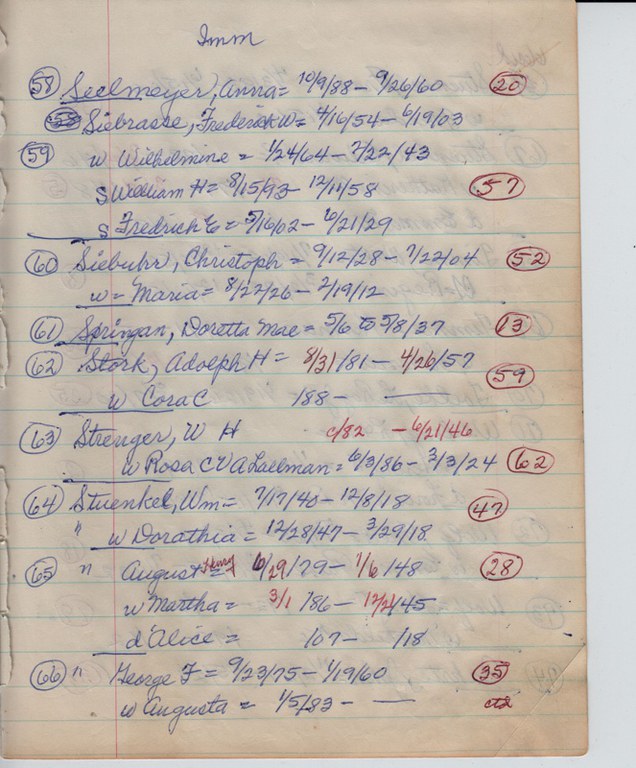 Imm
58 Seelmeyer, Anna = 10/9/88 - 9/26/60 20
Siebrasse, Frederick W = 4/16/54 - 6/19/03
59 w Wilhelmine = 1/24/64 - 7/22/43
S William H = 8/15/93 - 12/11/58 57
S Fredrich E = 5/16/02 - 6/21/29
60 Siebuhr, Christoph = 9/12/28 - 7/22/04 52
w = Maria = 8/22/26 - 2/19/12
61 Springan, Doretta Mae = 5/6 to 5/8/37 13
62 Stork, Adolph H = 8/31/81 - 4/26/57
w Cora C 188 - — 59
63 Strenger, W H c/82 - 6/21/46
w Rosa C V A Loellman = 6/3/86 - 3/3/24 62
64 Stuenkel, Wm = 7/17/40 - 12/8/18 47
" w Dorathia = 12/28/47 - 3/29/18
65 " August Henry = 6/29/79 - 1/6/48 28
w Martha = 3/1/86 - 12/21/45
d Alice = /07 - /18
66 " George F = 9/23/75 - 1/19/60 35
w Augusta = 1/5/83 - —